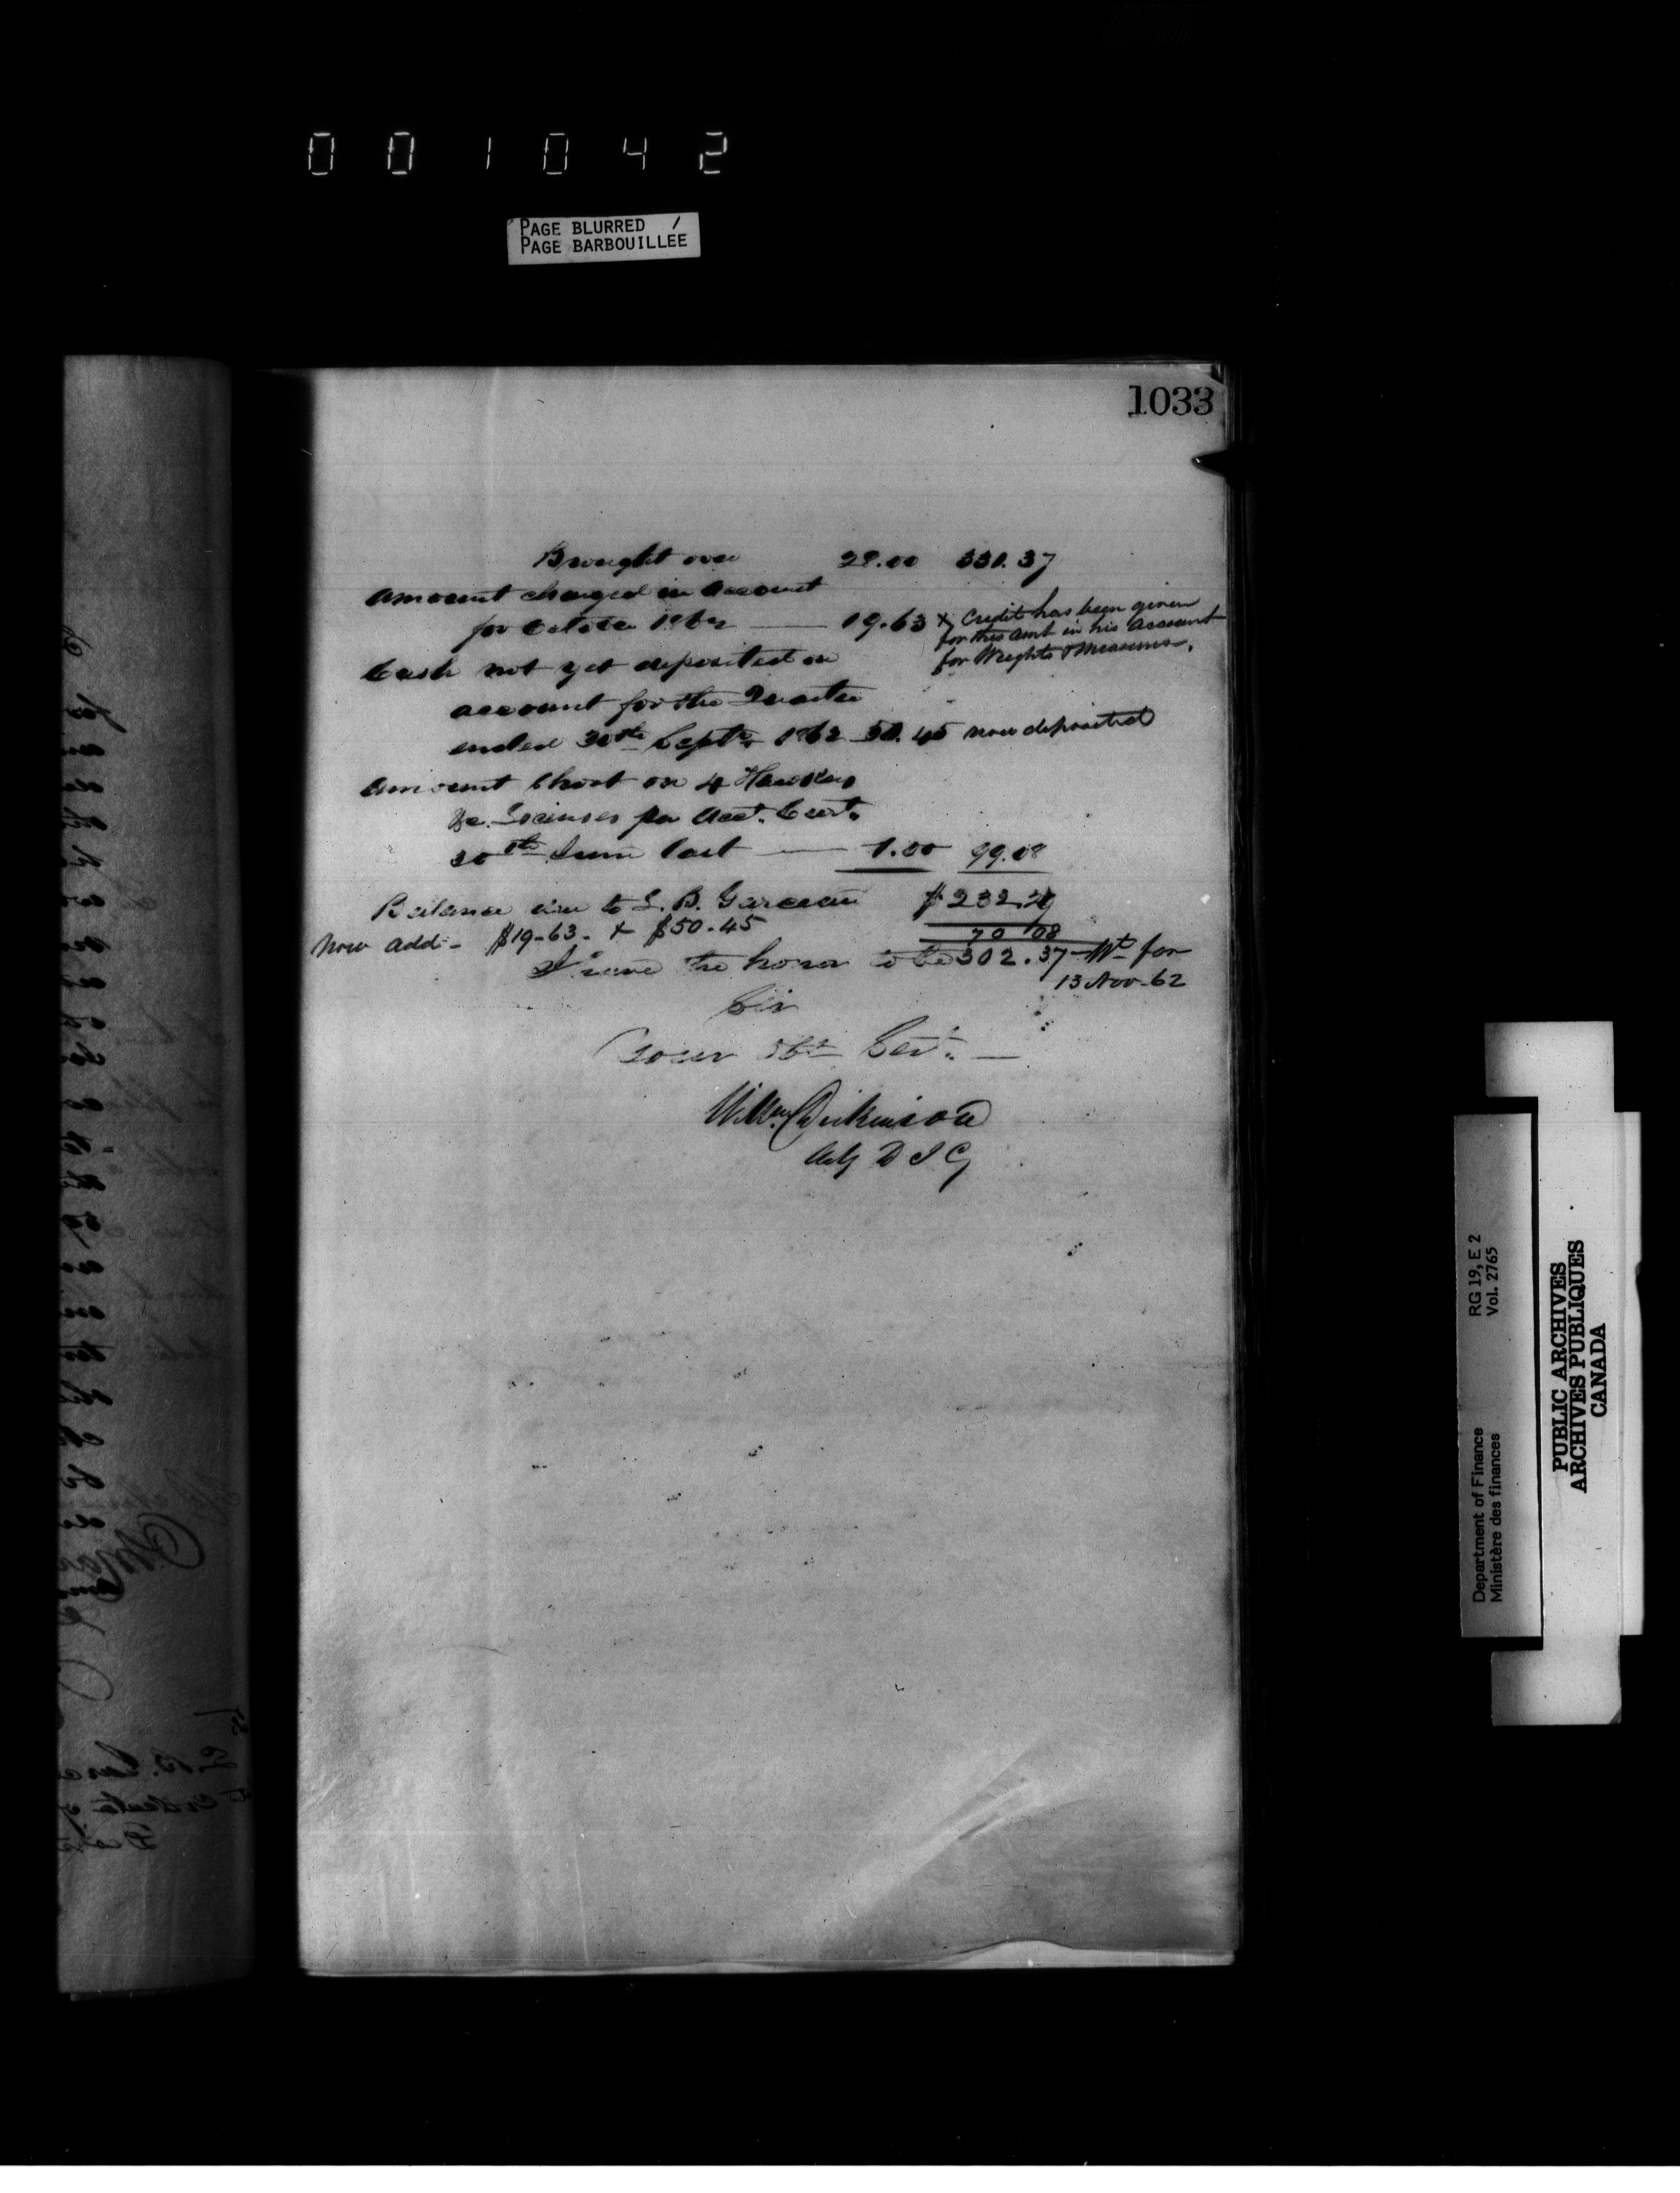 001042
PAGE BLURRED /
PAGE BARBOUILLEE
1033
Brought over 28.00 331.37
Amount charged in account
for October 1862 — 19.63 x Credit has been given
for this amt in his account
for Weights & Measures.
Cash not yet deposited on
account for the Quarter
ended 30th Septr 1862 50.45 now deposited
Amount short on 4 Hawkers
&c. Licenses per Acct. Curt.
30th June last — 1.00 99.08
Balance due to L. B. Garceau $232.29
Now add - $19-63. + $50.45 70 08
I have the honor to be 302.37 Wt for
13 Nov-62
Sir
Your Obt Servt. —
Willm Dickinson
Actg D I G
RG 19, E 2
Vol. 2765
Department of Finance
Ministère des finances
PUBLIC ARCHIVES
ARCHIVES PUBLIQUES
CANADA